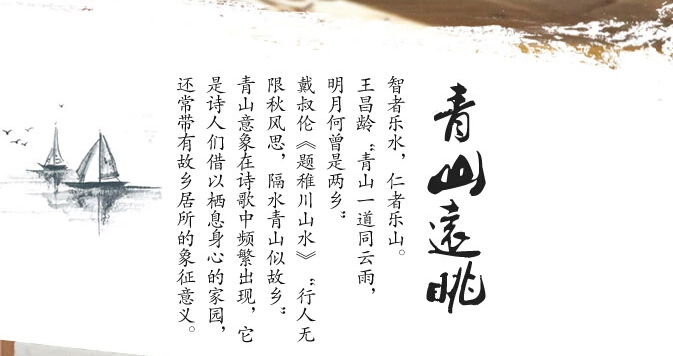 青山遠眺
智者乐水，仁者乐山。
王昌龄“青山一道同云雨，
明月何曾是两乡”
戴叔伦《题稚川山水》“行人无
限秋风思，隔水青山似故乡”
青山意象在诗歌中频繁出现，它
是诗人们借以栖息身心的家园，
还常带有故乡居所的象征意义。